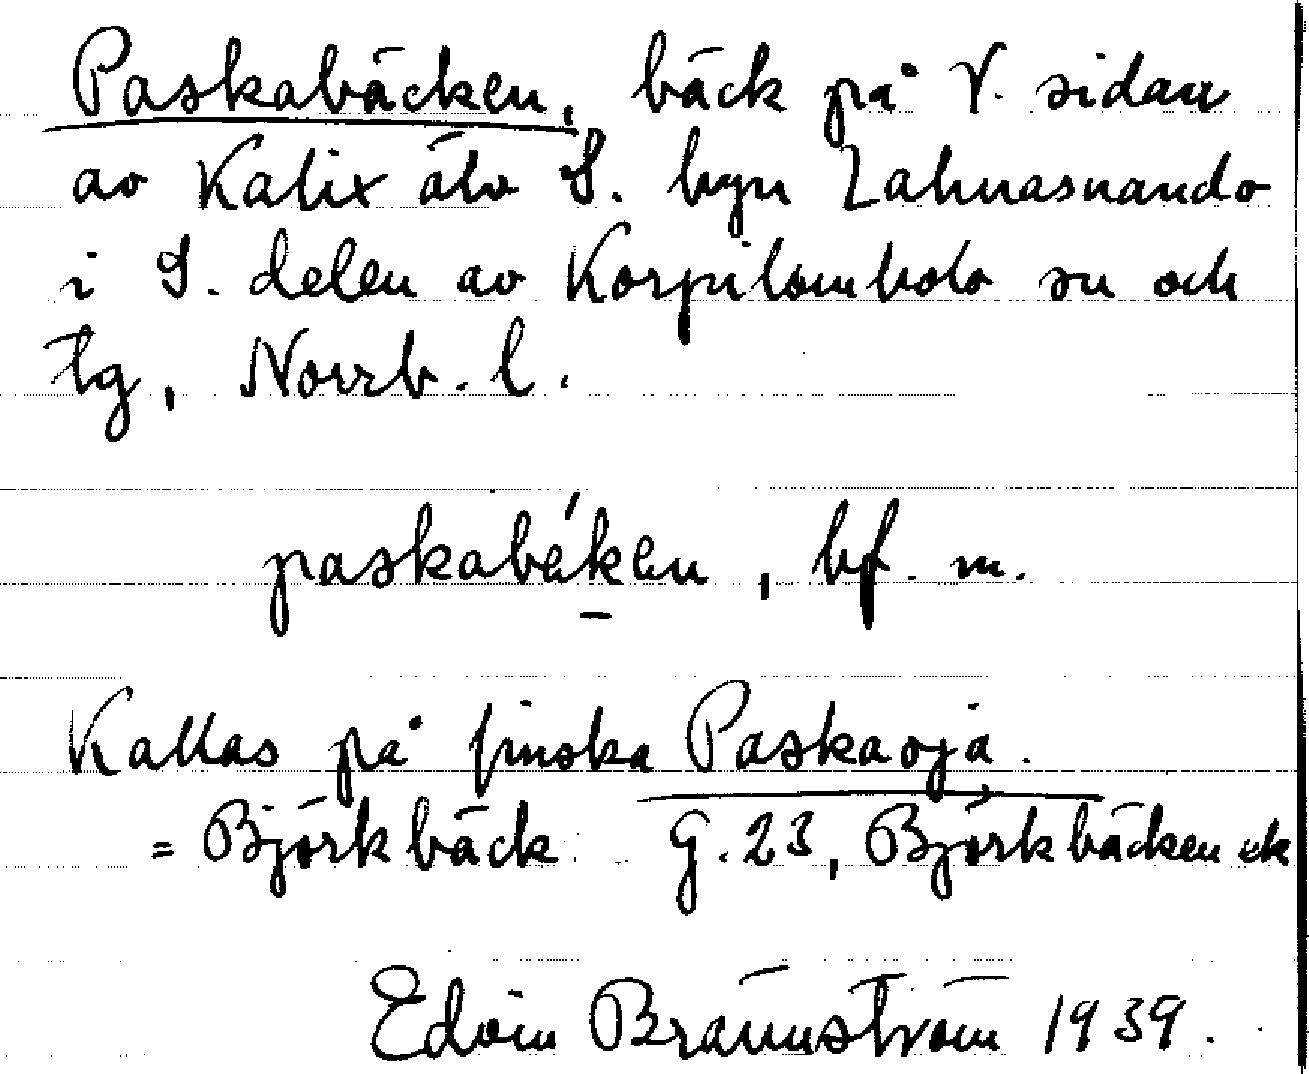 Paskabäcken, bäck på V. sidan
av Kalix älv S. byn Lahnasuando
i S. delen av Korpilombolo sn och
tg, Norrb. l.
paskabéken, bf. m.
Kallas på finska Paskaoja.
= Björkbäck G. 23, Björkbäcken ek
Edvin Brännström 1939.